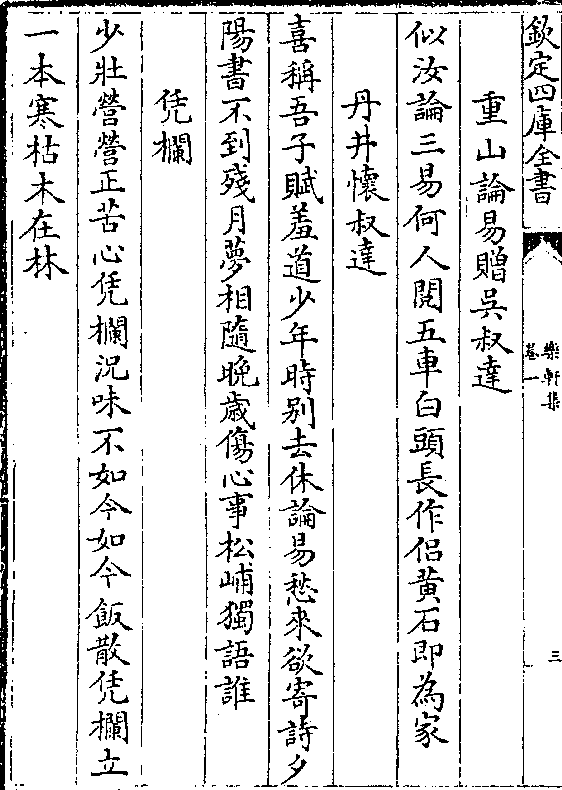 欽定四庫全書
樂軒集
卷一
三
重山論易贈吳叔達
似汝論三易何人閱五車白頭長作侶黄石即為家
丹井懷叔達
喜稱吾子賦羞道少年時别去休論易愁來欲寄詩夕
陽書不到殘月夢相隨晚歲傷心事松崦獨語誰
凭欄
少壯營營正苦心凭欄況味不如今如今飯散凭欄立
一本寒枯木在林